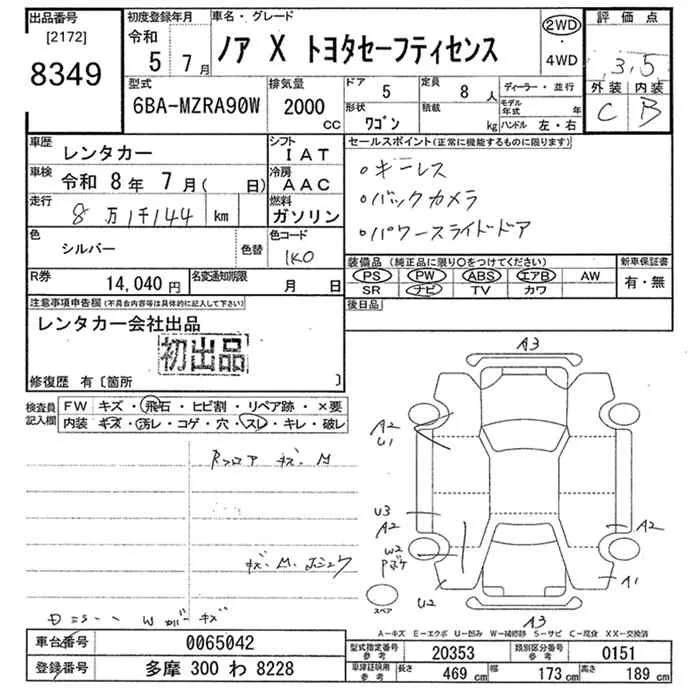 出品番号 [2172] 8349
初度登録年月 令和 5年 7月
車名・グレード ノア X トヨタセーフティセンス
2WD・4WD
評価点 3.5
外装 C 内装 B
型式 6BA-MZRA90W
排気量 2000 CC
ドア 5
定員 8人
形状 ワゴン
積載 kg
ディーラー・並行
モデル年式 年
ハンドル 左・右
車歴 レンタカー
シフト IAT
車検 令和 8年 7月( 日)
冷房 AAC
走行 8万1千144 km
燃料 ガソリン
色 シルバー 色替
色コード 1K0
R券 14,040円
名変通知期限 月 日
セールスポイント(正常に機能するものに限ります)
○キーレス
○バックカメラ
○パワースライドドア
装備品(純正品に限り○をつけてください)
PS PW ABS エアB AW
SR ナビ TV カワ
新車保証書 有・無
後日品
注意事項申告欄(不具合内容等は具体的に記入して下さい)
レンタカー会社出品
初出品
修復歴 有〔箇所 〕
検査員記入欄
FW キズ・飛石・ヒビ割・リペア跡・×要
内装 キズ・汚レ・コゲ・穴・スレ・キレ・破レ
Rフロア キズ M
A3
A2
U1
U3
A2
W2
A2
A1
U2
A3
スペア
A-キズ E-エクボ U-凹み W-補修跡 S-サビ C-腐食 XX-交換済
車台番号 0065042
登録番号 多摩 300 わ 8228
型式指定番号 参考 20353
類別区分番号 参考 0151
車検証明用 参考 長さ 469 cm 幅 173 cm 高さ 189 cm